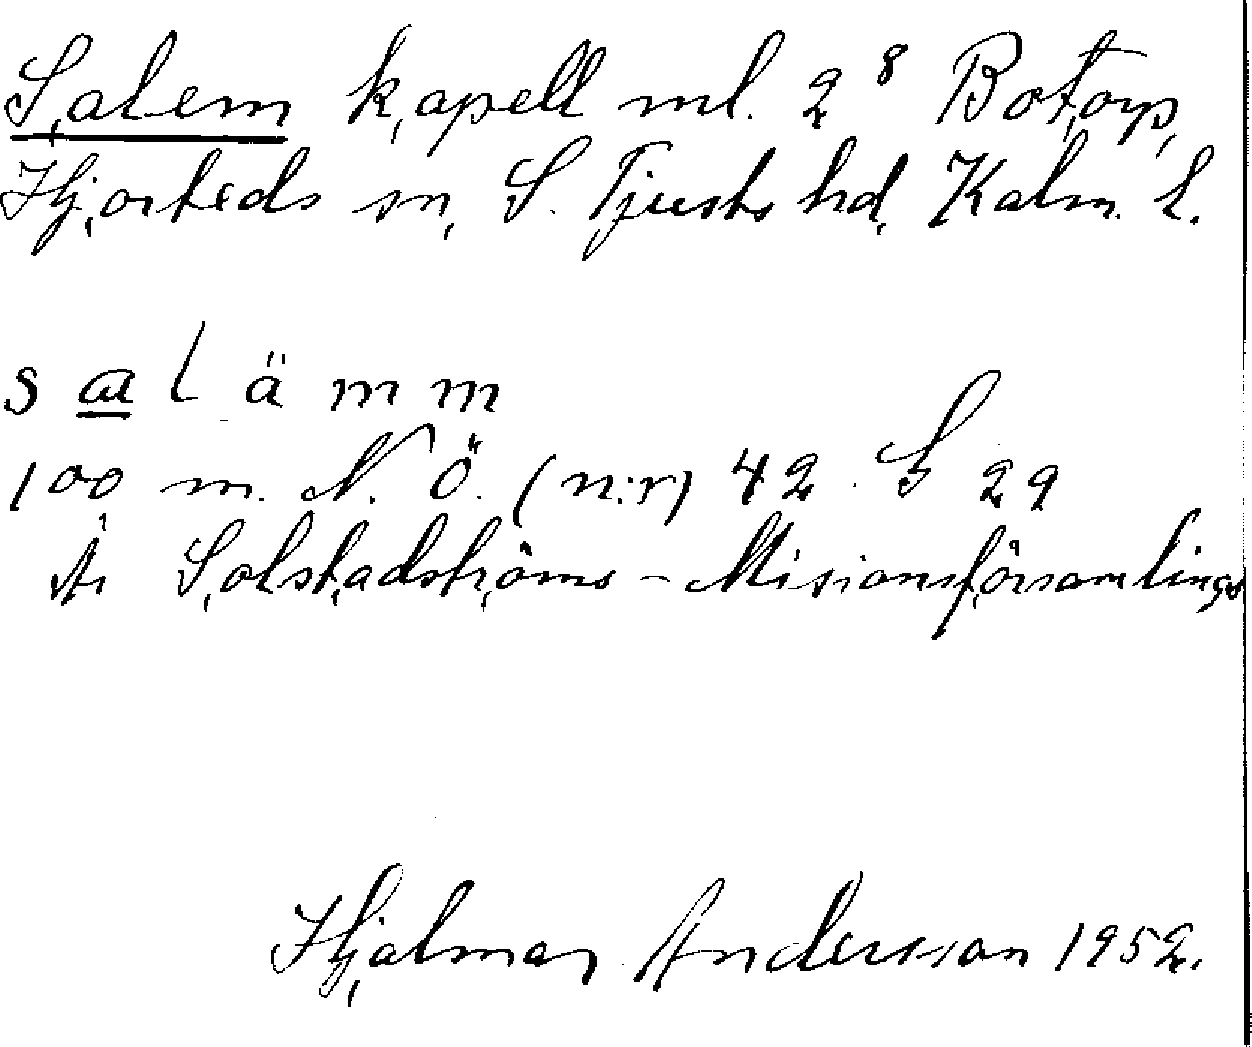 Salem kapell ml. 2⁸ Botorp,
Hjorteds sn, S. Tjusts hd, Kalm. l.
salämm
100 m. N. Ö. (n:r) 42. S 29
Är Solstadströms - Misionsförsamlings
Hjalmar Andersson 1952.